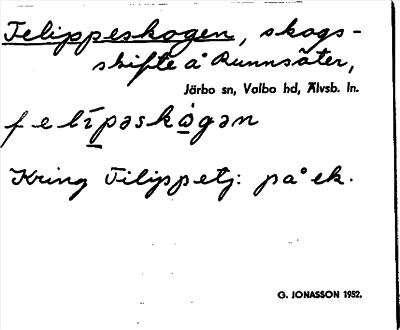 Felippeskogen, skogs-
skifte å Runnsäter,
Järbo sn, Valbo hd, Älvsb. ln.
felipəskógən
Kring Filippetj: på ek.
G. JONASSON 1952.